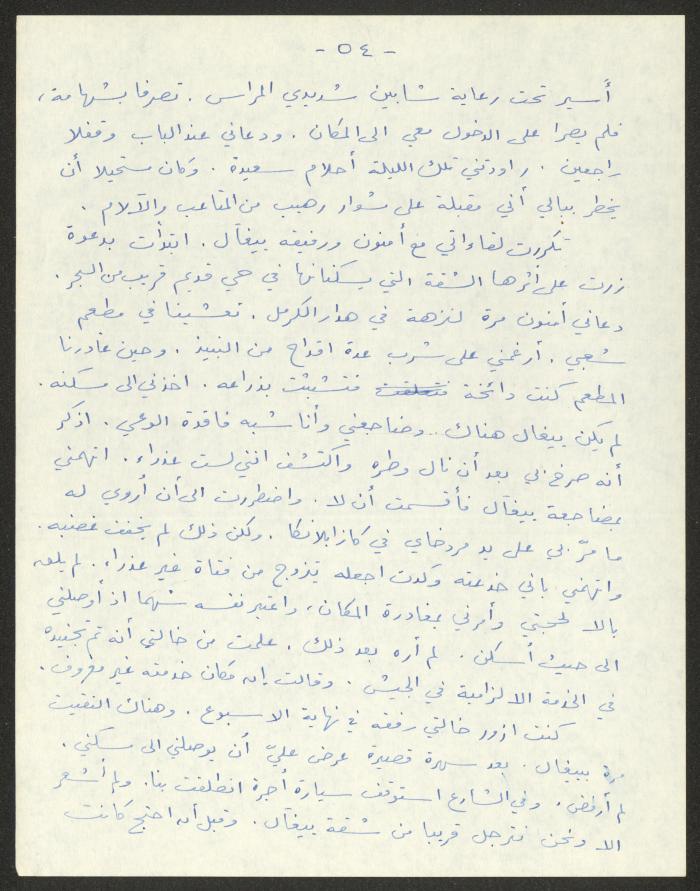 - ٥٤ -
أسير تحت رعاية شابين شديدي المراس . تصرفا بشهامة ،
فلم يصرا على الدخول معي الى المكان . ودعاني عند الباب وقفلا
راجعين . راودتني تلك الليلة أحلام سعيدة . وكان مستحيلا أن
يخطر ببالي أني مقبلة على مشوار رهيب من المتاعب والآلام .
تكررت لقاءاتي مع أمنون ورفيقه ييغال . ابتدأت بدعوة
زرت على أثرها الشقة التي يسكنانها في حي قديم قريب من البحر .
دعاني أمنون مرة لنزهة في هدار الكرمل . تعشينا في مطعم
شعبي . أرغمني على شرب عدة اقداح من النبيذ . وحين غادرنا
المطعم كنت دائخة فتعلقت فتشبثت بذراعه . اخذني الى مسكنه .
لم يكن ييغال هناك .. وضاجعني وأنا شبه فاقدة الوعي . اذكر
أنه صرخ بي بعد أن نال وطره واكتشف انني لست عذراء . اتهمني
بمضاجعة ييغال فأقسمت أن لا . واضطررت الى أن أروي له
ما مرّ بي على يد مردخاي في كازابلانكا . ولكن ذلك لم يخفف غضبه .
واتهمني باني خدعته وكدت اجعله يتزوج من فتاة غير عذراء . لم يلق
بالا لحجتي وأمرني بمغادرة المكان ، واعتبر نفسه شهما اذ أوصلني
الى حيث أسكن . لم أره بعد ذلك . علمت من خالتي أنه تم تجنيده
في الخدمة الالزامية في الجيش . وقالت إن مكان خدمته غير معروف .
كنت ازور خالتي رفقه في نهاية الاسبوع . وهناك التقيت
مرة بييغال . بعد سهرة قصيرة عرض عليّ أن يوصلني الى مسكني .
لم أرفض . وفي الشارع استوقف سيارة أجرة انطلقت بنا . ولم أشعر
الا ونحن نترجل قريبا من شقة ييغال . وقبل أن احتج كانت